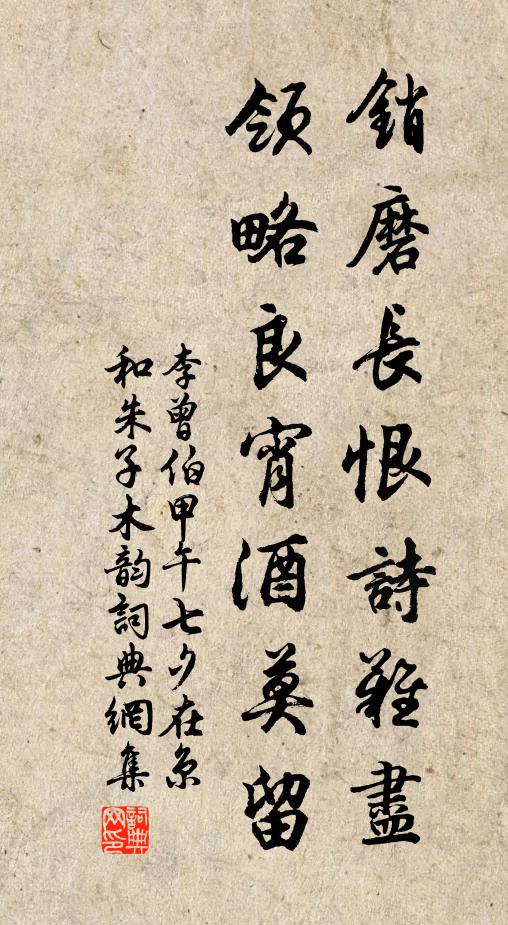 銷磨長恨詩難盡
領略良宵酒莫留
李曾伯甲午七夕在京
和朱子木韵詞典網集
詞典
网印